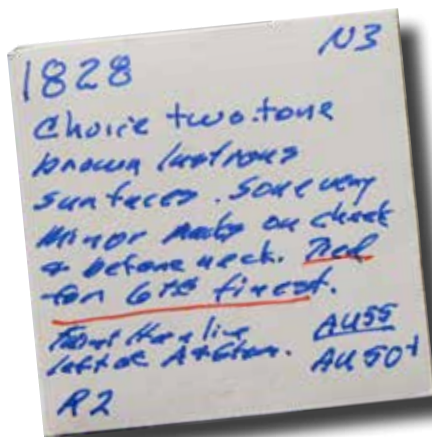 1828 N3
Choice two-tone
brown lustrous
surfaces. Some very
minor on cheek
& before neck. Tied
for 6th finest.
Faint Hairline AU55
left of AU50+
R2